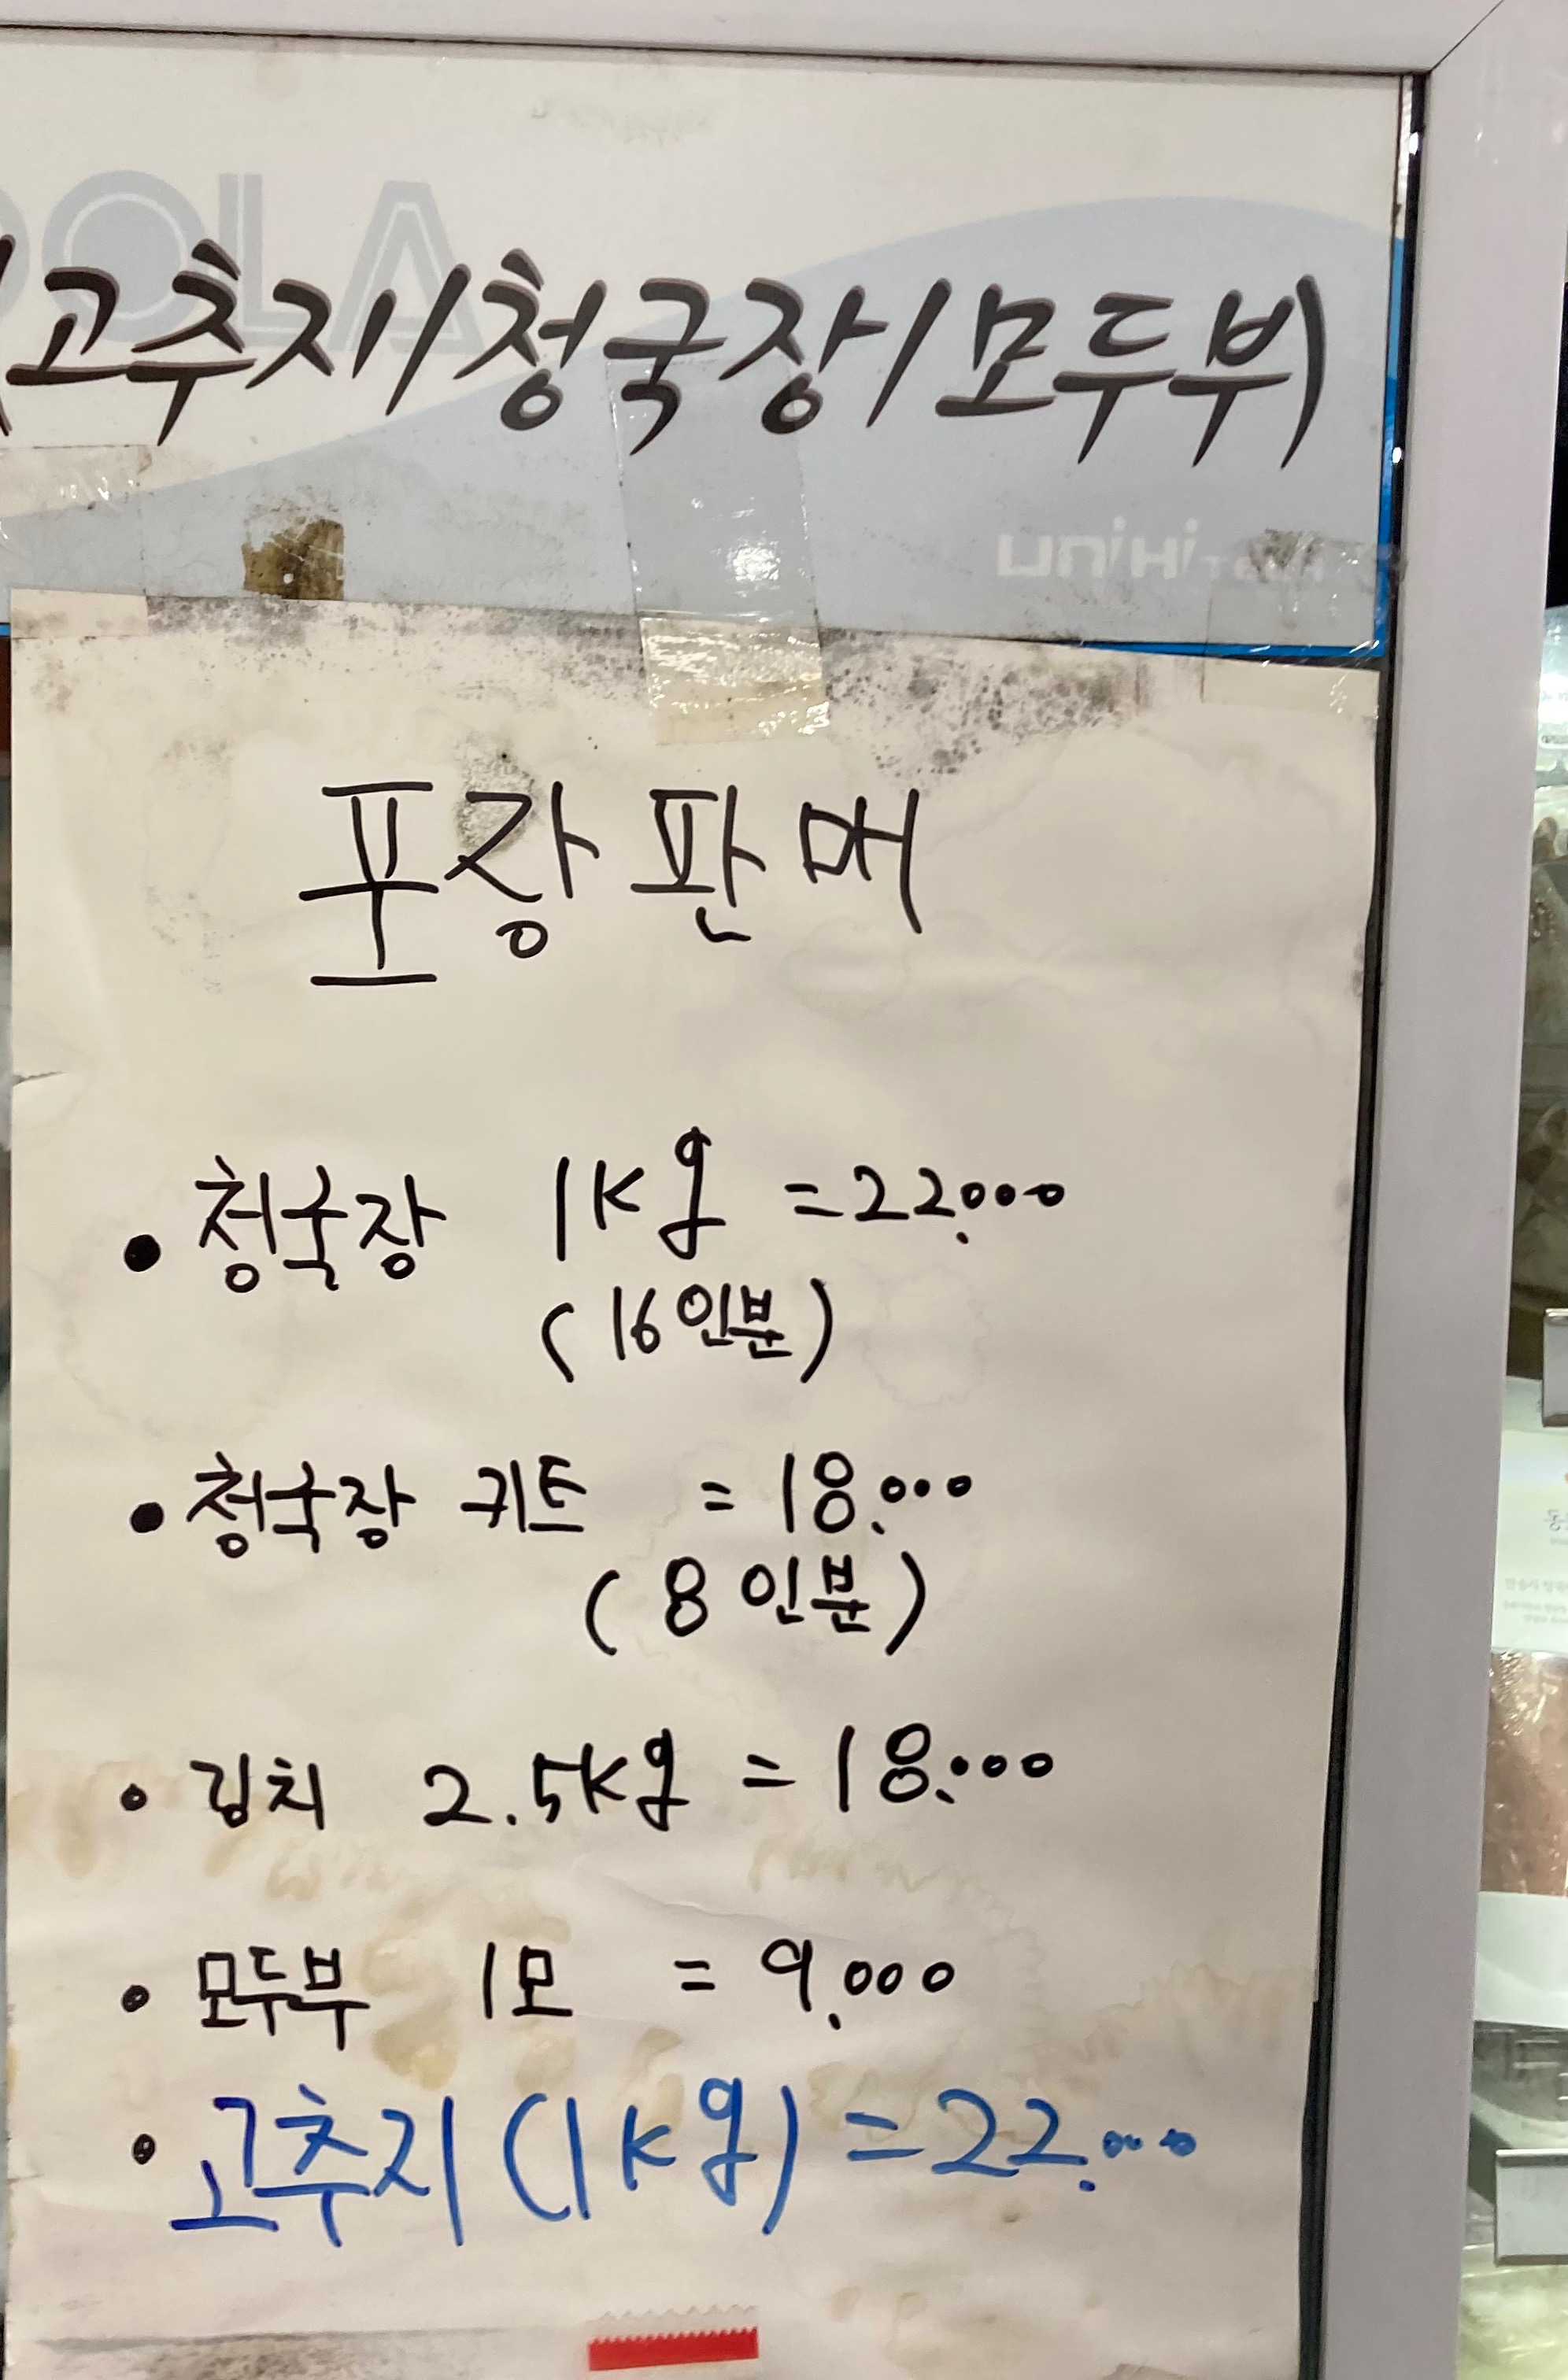 (고추지/청국장/모두부)
포장판매
• 청국장 1Kg =22.000
(16인분)
• 청국장 키트 = 18.000
(8인분)
• 김치 2.5Kg = 18.000
• 모두부 1모 = 9.000
• 고추지 (1Kg) =22.000